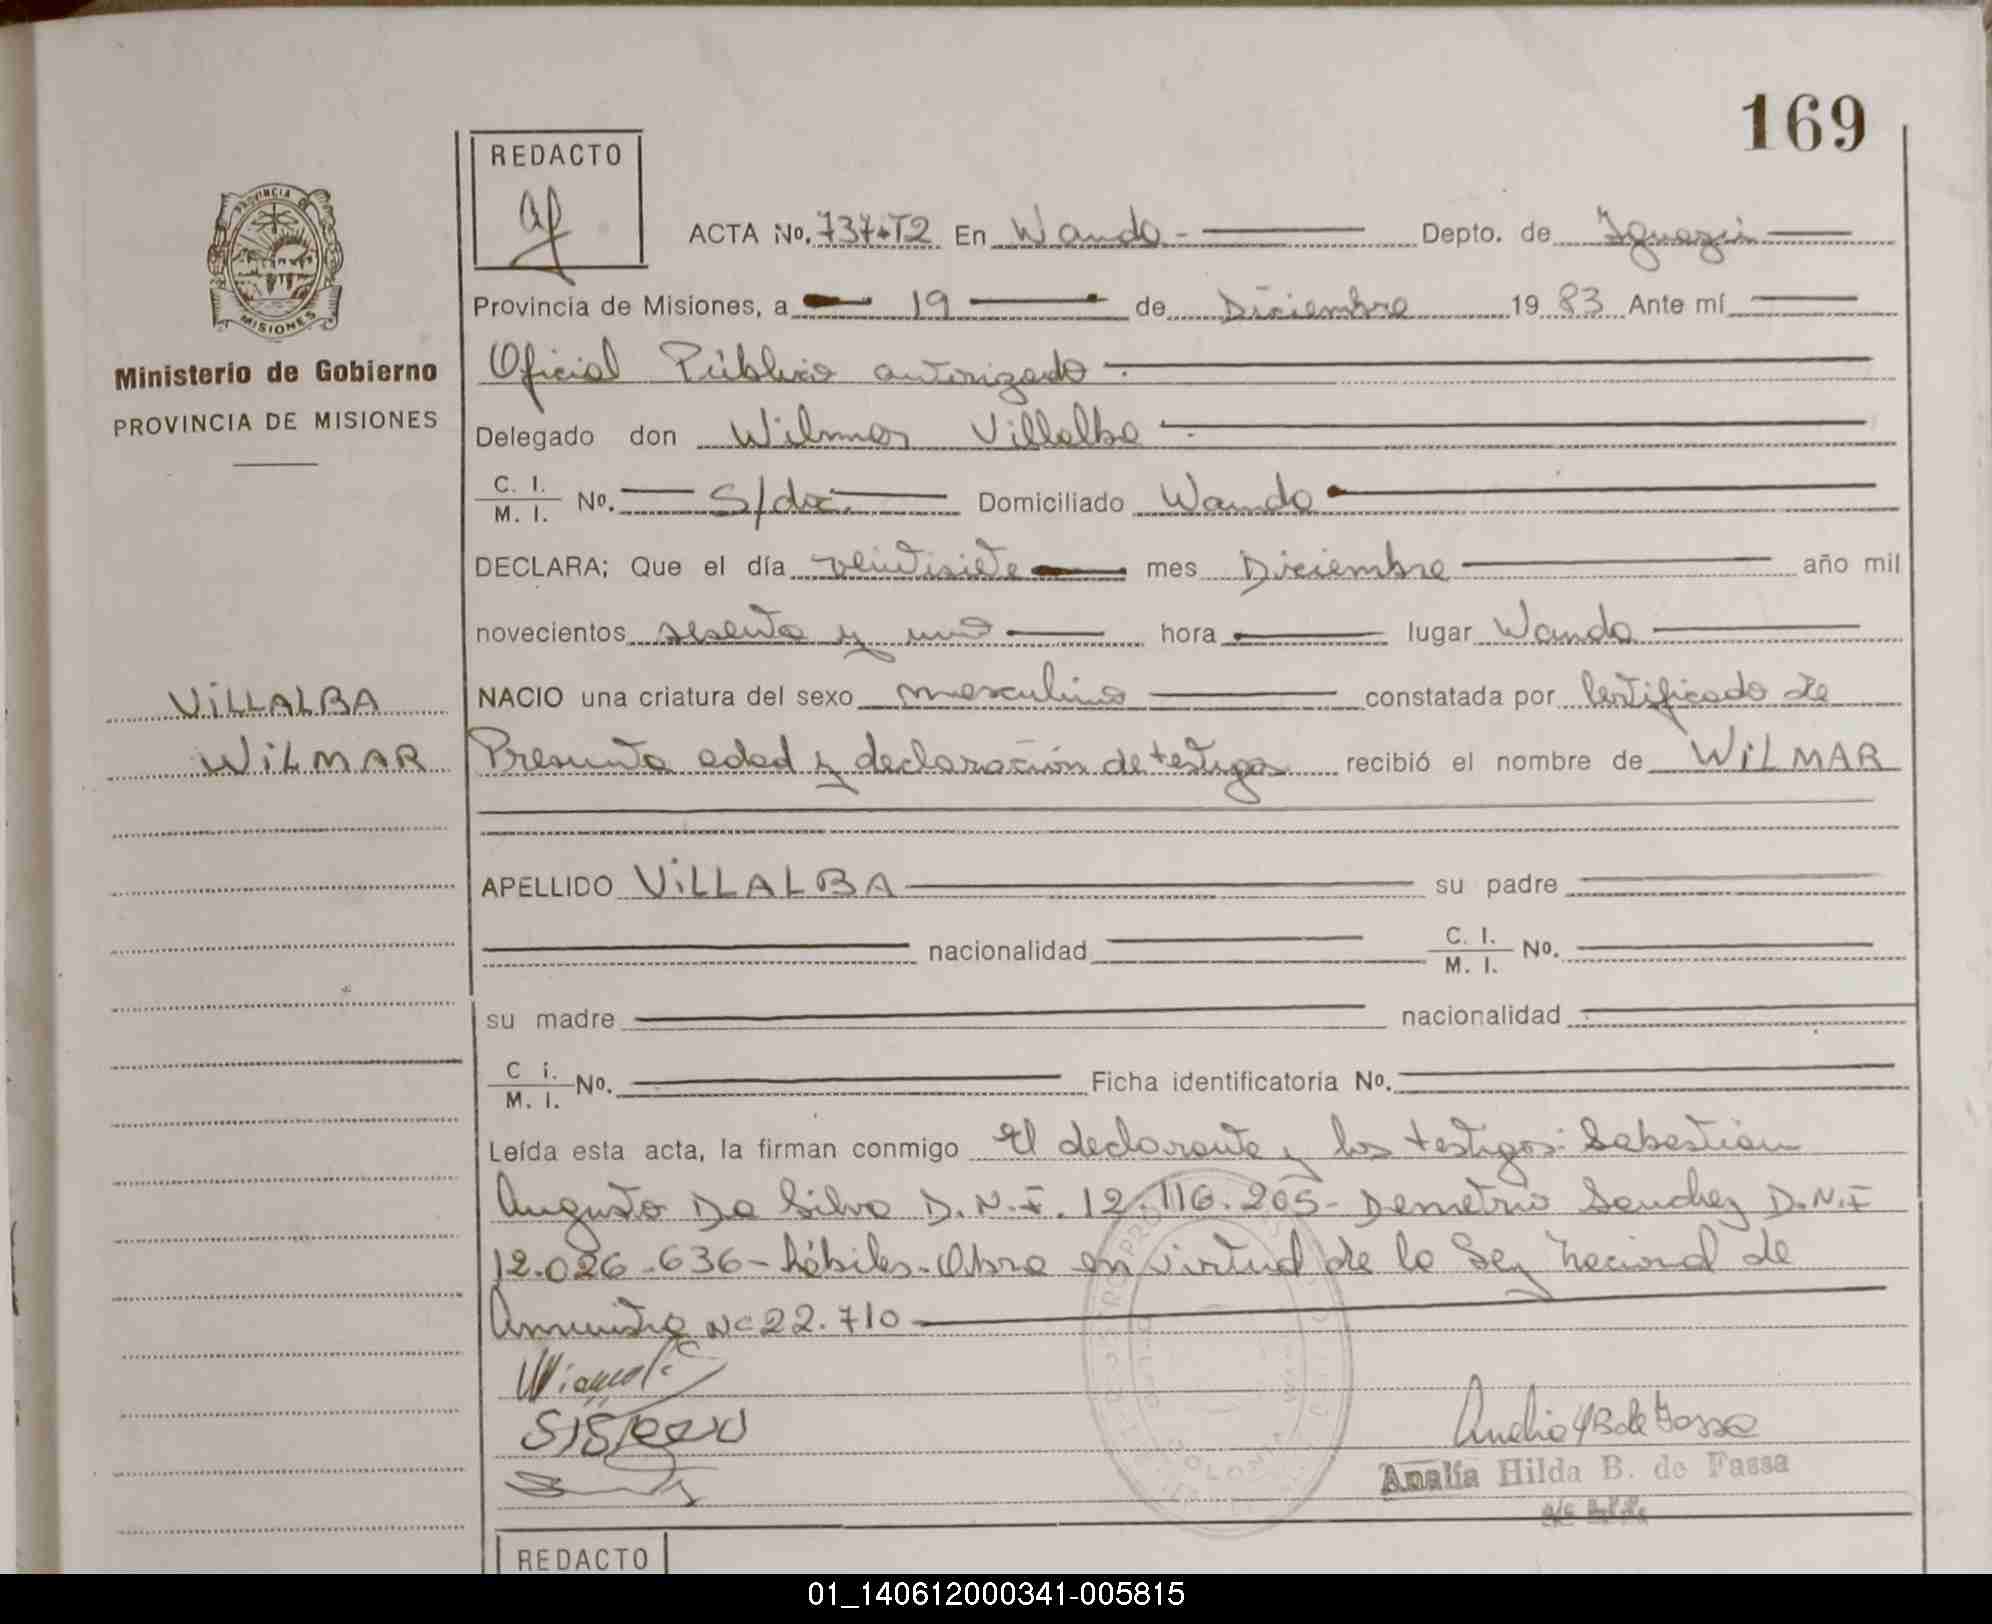 169
REDACTO
ACTA No. 737-T2 En Wanda - Depto. de Iguazú
Provincia de Misiones, a 19 de Diciembre 1983 Ante mí
PROVINCIA DE
MISIONES
Ministerio de Gobierno
PROVINCIA DE MISIONES
Oficial Público autorizado
Delegado don Wilmar Villalba
C. I.
M. I. No. S/doc. Domiciliado Wanda
DECLARA; Que el día veintisiete mes Diciembre año mil
novecientos sesenta y uno hora lugar Wanda
VILLALBA
NACIO una criatura del sexo masculino constatada por Certificado de
WILMAR
Presunta edad y declaración de testigos recibió el nombre de WILMAR
APELLIDO VILLALBA su padre
nacionalidad C. I.
M. I. No.
su madre nacionalidad
C i.
M. I. No. Ficha identificatoria No.
Leída esta acta, la firman conmigo El declarante y los testigos: Sebastián
Augusto Da Silva D.N.I. 12.116.205- Demetrio Sanchez D.N.I
12.026.636- hábiles. Obra en virtud de la Ley Nacional de
Amnistia Nº 22.710
Analía Hilda B. de Fassa
REDACTO
01_140612000341-005815